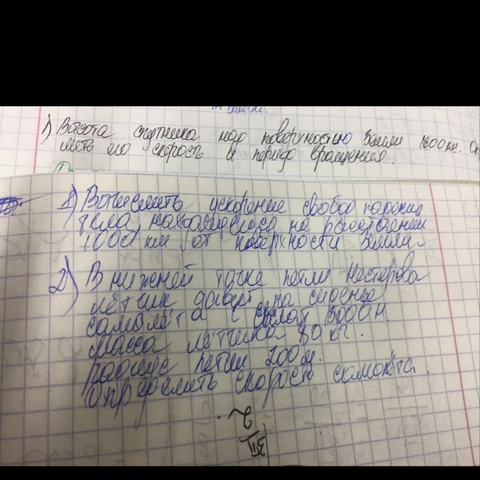 1) Высота спутника над поверхностью Земли 1600км. Оп
его скорость и период вращения.
1) Вычислить ускорение свобод падения
тела, находящегося на расстоянии
1000 км от поверхности Земли.
2) В нижней точке петли Нестерова
лётчик давит на сиденье
самолёта с силой
масса лётчика 80 кг.
радиус петли 200м.
Определить скорость самолёта.